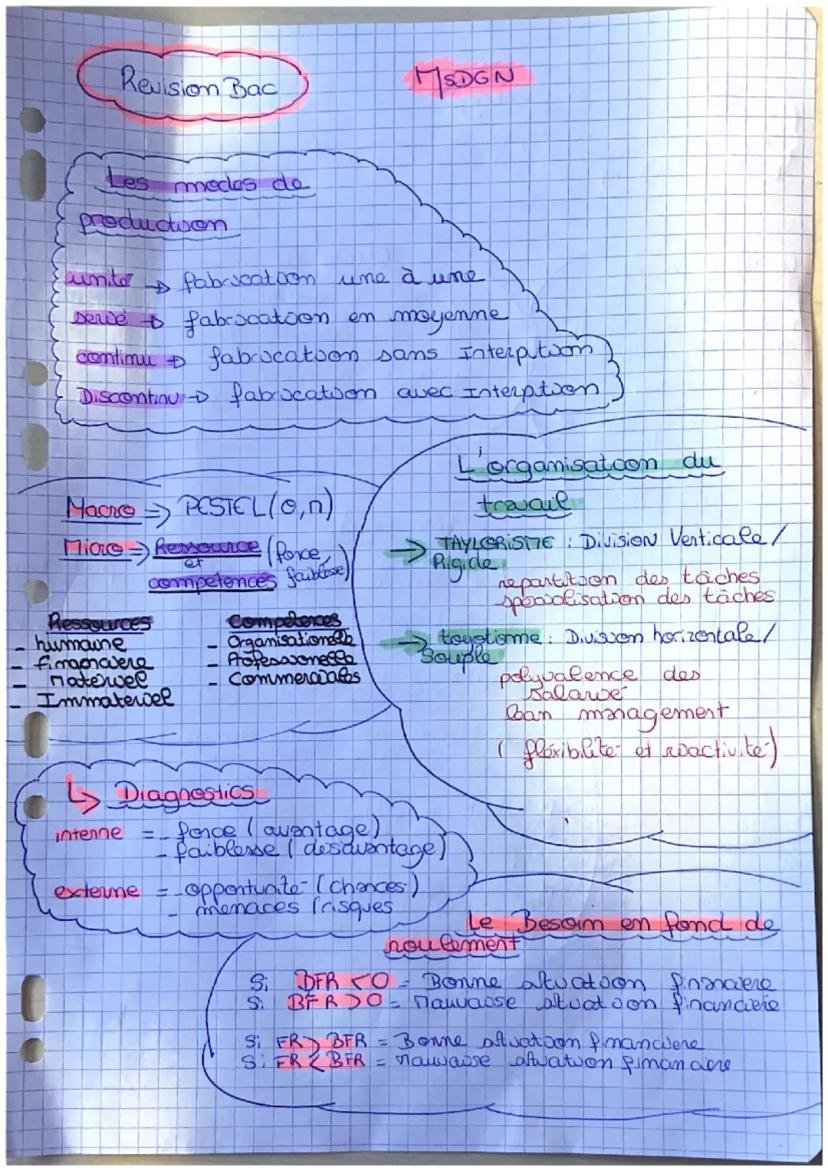 Revision Bac
MSDGN
Les modes de
production
unité → fabrication une à une
serie → fabrication en moyenne
continu → fabrication sans Interption
Discontinu → fabrication avec Interption
Macro => PESTEL (O,n)
Micro => Ressource (force,
et
competences faiblesse)
Ressources
- humaine
- financiere
- Materiel
- Immateriel
Competences
- Organisationelle
- Professionelle
- Commerciales
L'organisation du
travail
→ TAYLORISME : Division Verticale /
Rigide
repartition des tâches
spécialisation des tâches
→ toyotisme : Division horizontale /
Souple
polyvalence des
salarié
lean management
( fléxibilité et réactivité )
↳ Diagnostics
interne = - force ( avantage)
- faiblesse ( desavantage)
externe = - opportunité (chances)
- menaces (risques
Le Besoin en fond de
roulement
Si BFR < 0 = Bonne situation financiere
Si BFR > 0 = Mauvaise situation financiere
Si FR > BFR = Bonne situation financiere
Si FR < BFR = Mauvaise situation financiere